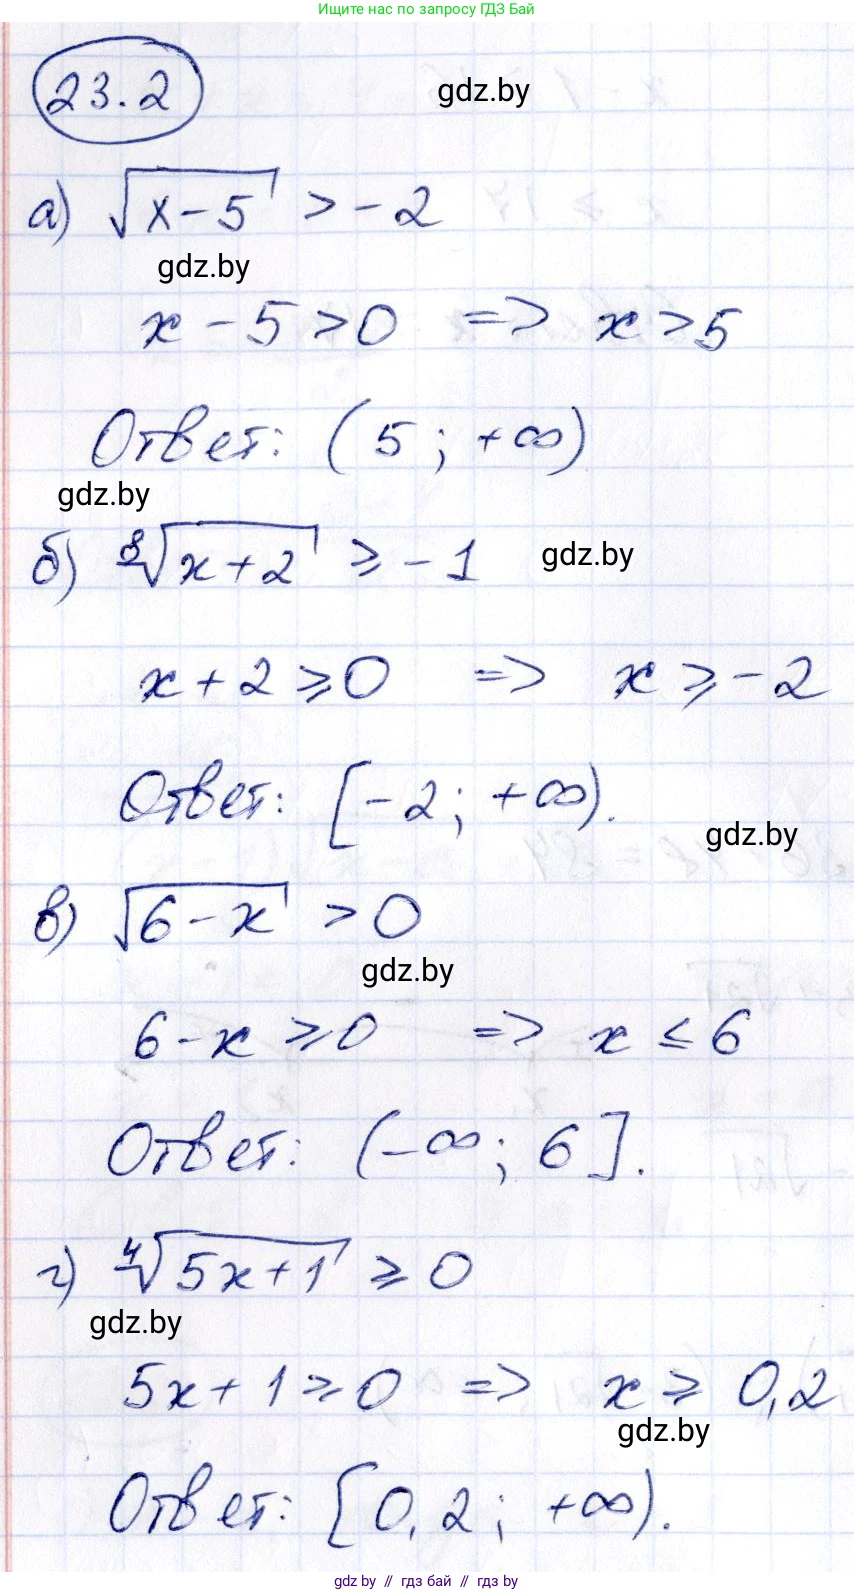 Ищите нас по запросу ГДЗ Бай
23.2
gdz.by
а) √(x-5) > -2
gdz.by
x - 5 > 0 => x > 5
Ответ: (5; +∞)
gdz.by
б) ⁸√(x+2) ≥ -1
gdz.by
x + 2 ≥ 0 => x ≥ -2
Ответ: [-2; +∞).
gdz.by
в) √(6-x) > 0
gdz.by
6 - x ≥ 0 => x ≤ 6
Ответ: (-∞; 6].
г) ⁴√(5x+1) ≥ 0
gdz.by
5x + 1 ≥ 0 => x ≥ 0,2
gdz.by
Ответ: [0,2; +∞).
gdz by // гдз бай // gdz by